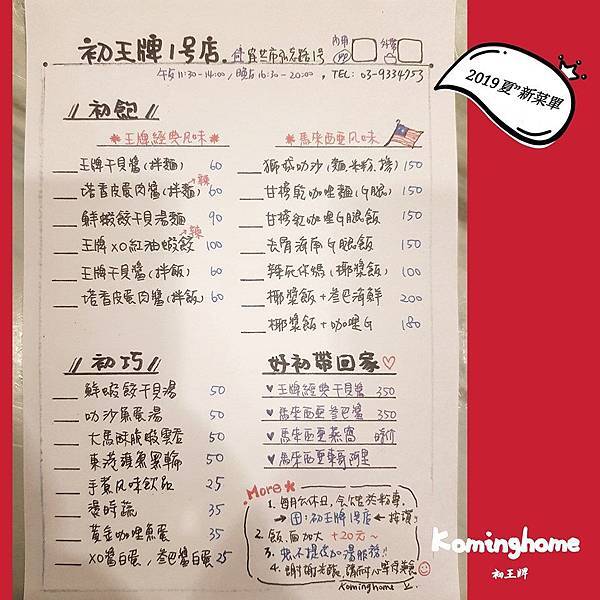 2019夏"新菜單
初王牌1号店
內用
外帶
午5 11:30-14:00, 晚5 16:30-20:00, TEL: 03-9334753
初飽
王牌經典風味
王牌干貝醬(拌麵) 60
塔香皮蛋肉醬(拌麵) 60
辣
鮮蝦餃干貝湯麵 90
王牌XO紅油蝦餃 100
辣
王牌干貝醬(拌飯) 60
塔香皮蛋肉醬(拌飯) 60
馬來西亞風味
獅城叻沙(麵.米粉.撈) 150
甘榜乾咖哩麵(G腿) 150
甘榜乾咖哩G腿飯 150
去骨海南G腿飯 150
(椰漿飯) 100
椰漿飯+叁巴海鮮 200
椰漿飯+咖哩G 180
初巧
鮮蝦餃干貝湯 50
叻沙魚蛋湯 50
大馬酥脆蝦棗 50
東港旗魚黑輪 50
手煮風味飲品 25
燙時蔬 35
黃金咖哩魚蛋 35
XO醬白蛋, 叁巴醬白蛋 25
好初帶回家♡
♥王牌經典干貝醬 350
♥馬來西亞叁巴醬 350
♥馬來西亞燕窩 時價
♥馬來西亞東哥阿里
More*
1. 每月六休日,公佈於粉專
→ 初王牌1号店 ←
2. 飯.面加大 +20元~
3. 恕不提供加湯服務!!
4. 謝謝光臨, 請耐心等待美食
Kominghome
Kominghome
初王牌